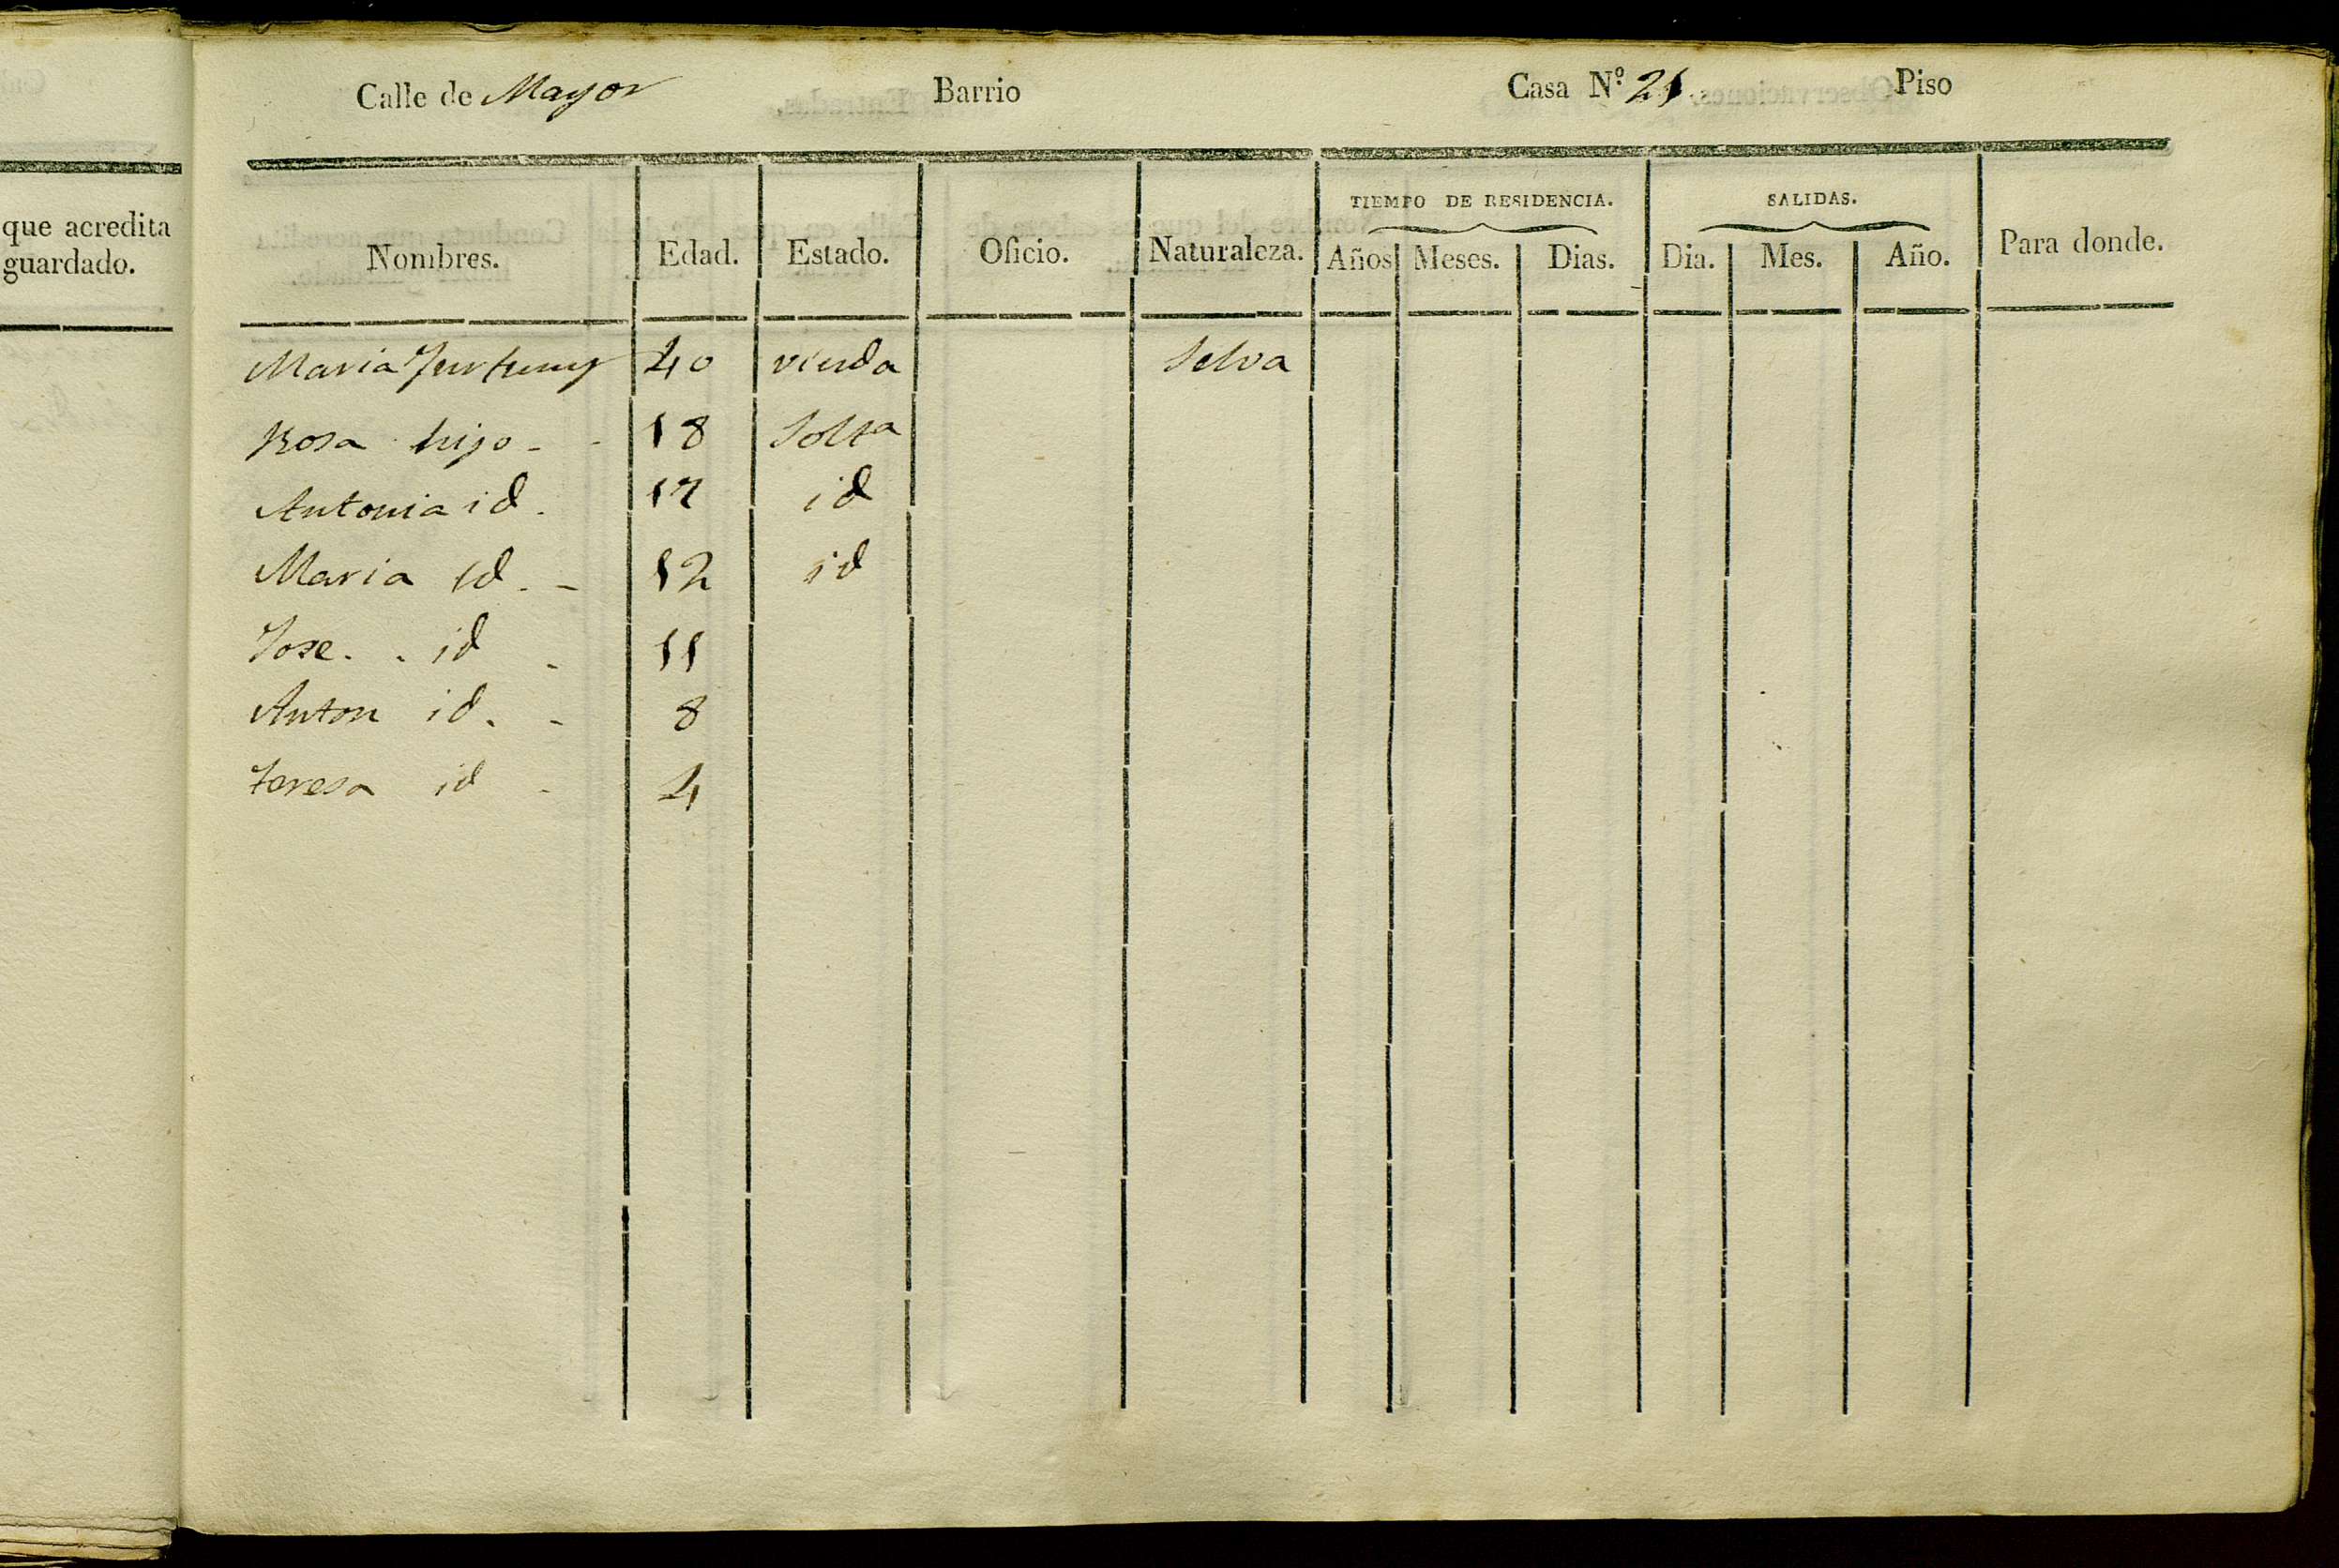 que acredita
guardado.
Calle de Mayor Barrio Casa N.º 21. Piso
TIEMPO DE RESIDENCIA. SALIDAS.
Nombres. Edad. Estado. Oficio. Naturaleza. Años Meses. Dias. Dia. Mes. Año. Para donde.
Maria 40 viuda Selva
Rosa hija - - 18 Solta
Antonia id. 17 id
Maria id. - 12 id
Jose. . id - 11
Anton id. - 8
Teresa id - 4